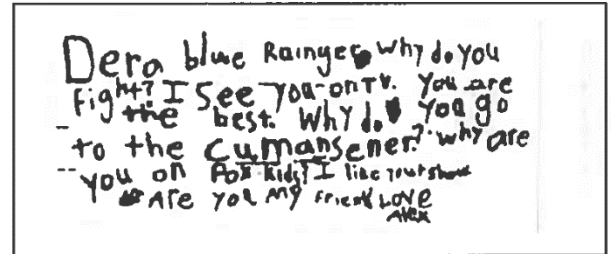 Dera blue Rainger why do you
fight? I See you on TV. You are
the best. Why do you go
to the cumansener? why are
you on Fox kids? I like your show
Are you my friend Love
Alex